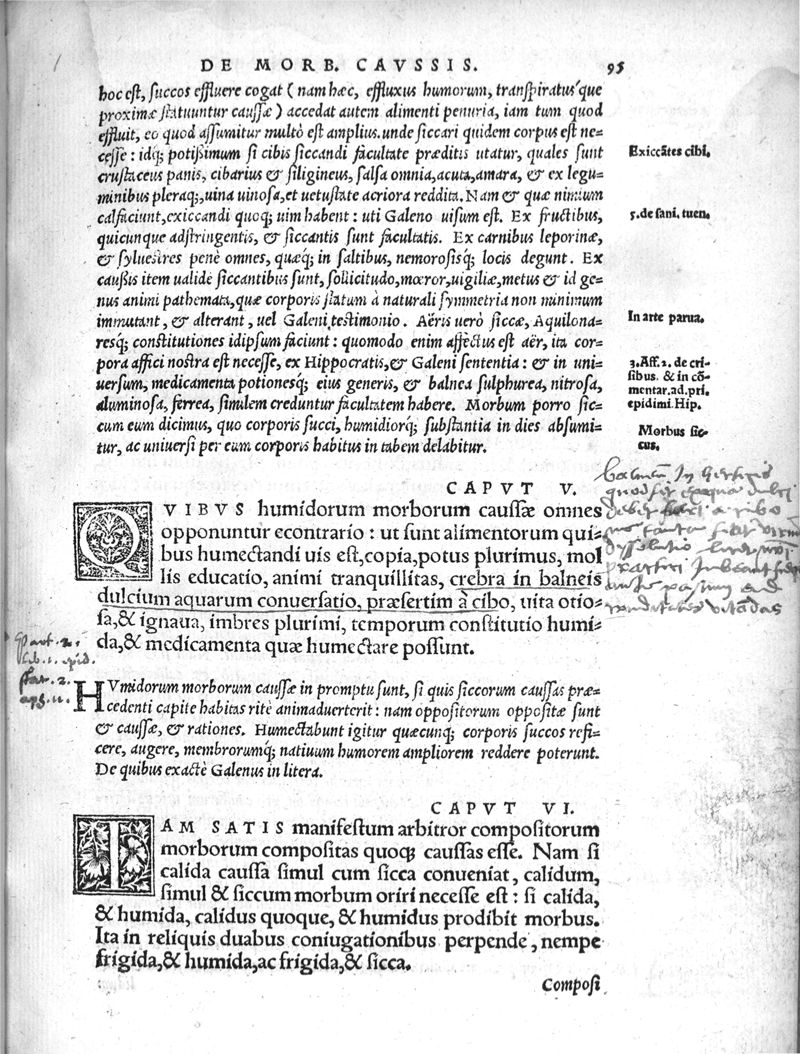 DE MORB. CAVSSIS. 95
hoc est, succos effluere cogat ( nam hæc, effluxus humorum, transpiratus'que
proximæ statuuntur caussæ ) accedat autem alimenti penuria, iam tum quod
effluit, eo quod assumitur multò est amplius. unde siccari quidem corpus est ne=
cesse : idq; potißimum si cibis siccandi facultate præditis utatur, quales sunt
Exiccãtes cibi.
crustaceus panis, cibarius & siligineus, salsa omnia, acuta, amara, & ex legu=
minibus pleraq;, uina uinosa, et uetustate acriora reddita. Nam & quæ nimium
calfaciunt, exiccandi quoq; uim habent : uti Galeno uisum est. Ex fructibus,
5. de sani. tuen.
quicunque adstringentis, & siccantis sunt facultatis. Ex carnibus leporinæ,
& syluestres penè omnes, quæq; in saltibus, nemorosisq; locis degunt. Ex
caußis item ualidè siccantibus sunt, sollicitudo, mœror, uigiliæ, metus & id ge=
nus animi pathemata, quæ corporis statum à naturali symmetria non minimum
immutant, & alterant, uel Galeni testimonio. Aëris uerò siccæ, Aquilona=
In arte parua.
resq; constitutiones idipsum faciunt : quomodo enim affectus est aër, ita cor=
pora affici nostra est necesse, ex Hippocratis, & Galeni sententia : & in uni=
3. Aff. 2. de cri=
sibus. & in cõ=
mentar. ad. pri.
epidimi. Hip.
uersum, medicamenta potionesq; eius generis, & balnea sulphurea, nitrosa,
aluminosa, ferrea, similem creduntur facultatem habere. Morbum porro sic=
cum eum dicimus, quo corporis succi, humidiorq; substantia in dies absumi=
Morbus sic=
cus.
tur, ac uniuersi per eum corporis habitus in tabem delabitur.
CAPVT V.
QVIBVS humidorum morborum caussæ omnes
opponuntur econtrario : ut sunt alimentorum qui=
bus humectandi uis est, copia, potus plurimus, mol
lis educatio, animi tranquillitas, crebra in balneis
dulcium aquarum conuersatio, præsertim à cibo, uita otio=
sa, & ignaua, imbres plurimi, temporum constitutio humi=
da, & medicamenta quæ humectare possunt.
HVmidorum morborum caussæ in promptu sunt, si quis siccorum caussas præ=
cedenti capite habitas ritè animaduerterit : nam oppositorum oppositæ sunt
& caussæ, & rationes. Humectabunt igitur quæcunq; corporis succos refi=
cere, augere, membrorumq; natiuum humorem ampliorem reddere poterunt.
De quibus exactè Galenus in litera.
CAPVT VI.
IAM SATIS manifestum arbitror compositorum
morborum compositas quoq; caussas esse. Nam si
calida caussa simul cum sicca conueniat, calidum,
simul & siccum morbum oriri necesse est : si calida,
& humida, calidus quoque, & humidus prodibit morbus.
Ita in reliquis duabus coniugationibus perpende, nempe
frigida, & humida, ac frigida, & sicca.
Composi